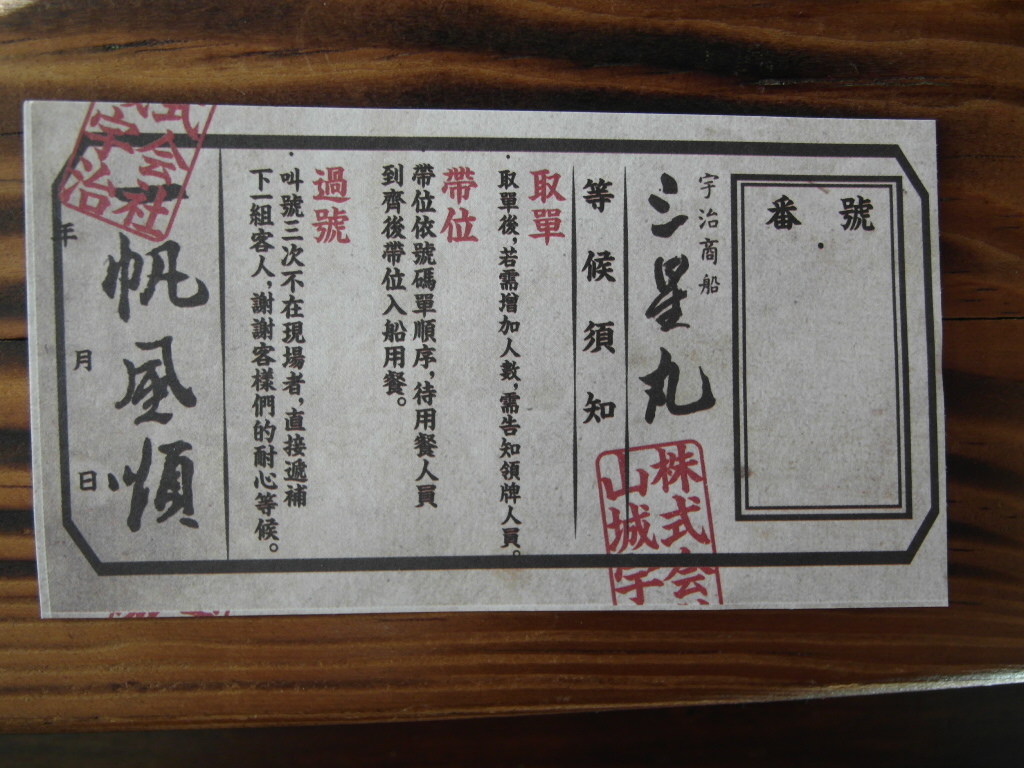 番號
宇治商船
三星丸
等候須知
取單
・取單後，若需增加人數，需告知領牌人員。
帶位
帶位依號碼單順序，待用餐人員
到齊後帶位入船用餐。
過號
・叫號三次不在現場者，直接遞補
下一組客人，謝謝客樣們的耐心等候。
一帆風順
年 月 日
株式会
山城宇
式会社
宇治